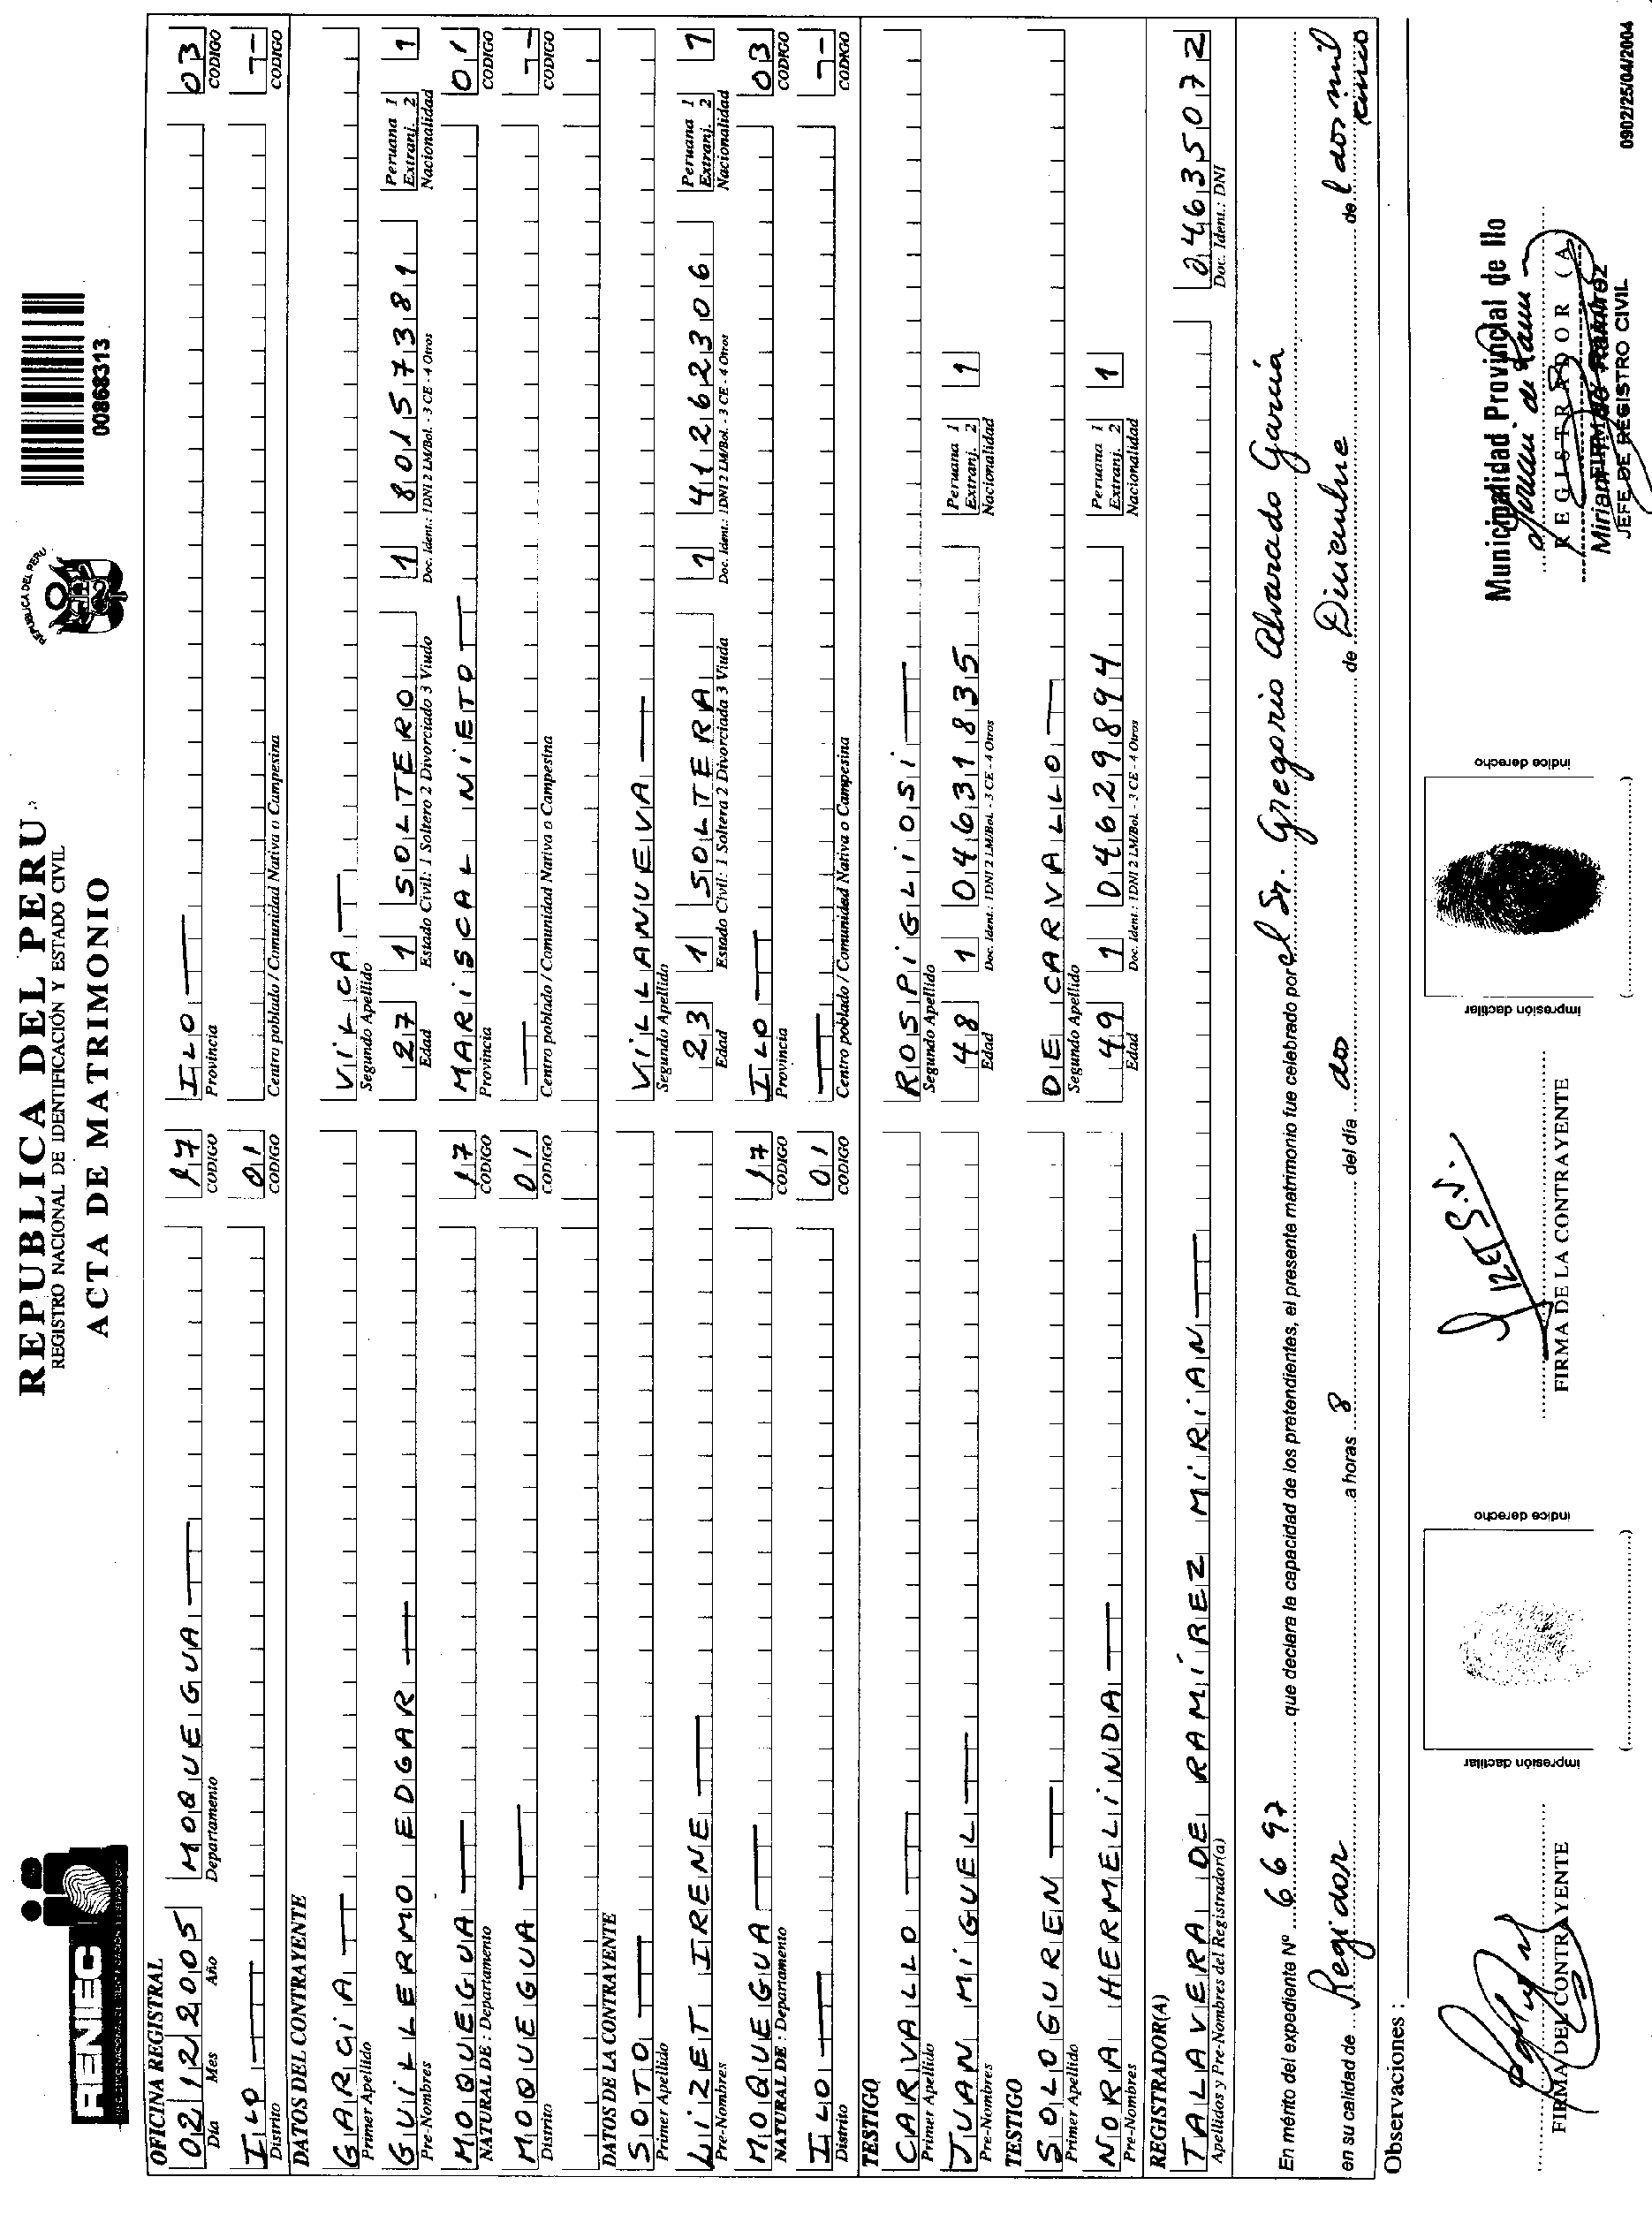 RENIEC
REGISTRO NACIONAL DE IDENTIFICACIÓN Y ESTADO CIVIL
REPUBLICA DEL PERU
REGISTRO NACIONAL DE IDENTIFICACIÓN Y ESTADO CIVIL
ACTA DE MATRIMONIO
REPUBLICA DEL PERU
00868313
OFICINA REGISTRAL
02 12 2005 MOQUEGUA 17 ILO 03
Día Mes Año Departamento CODIGO Provincia CODIGO
ILO 01
Distrito CODIGO Centro poblado / Comunidad Nativa o Campesina CODIGO
DATOS DEL CONTRAYENTE
GARCIA VILCA
Primer Apellido Segundo Apellido
GUILLERMO EDGAR 27 1 SOLTERO 1 80157381 Peruana 1 Extranj. 2 1
Pre-Nombres Edad Estado Civil: 1 Soltero 2 Divorciado 3 Viudo Doc. Ident.: 1DNI 2 LM/Bol. - 3 CE - 4 Otros Nacionalidad
MOQUEGUA 17 MARISCAL NIETO 01
NATURAL DE : Departamento CODIGO Provincia CODIGO
MOQUEGUA 01
Distrito CODIGO Centro poblado / Comunidad Nativa o Campesina CODIGO
DATOS DE LA CONTRAYENTE
SOTO VILLANUEVA
Primer Apellido Segundo Apellido
LIZET IRENE 23 1 SOLTERA 1 41262306 Peruana 1 Extranj. 2 1
Pre-Nombres Edad Estado Civil: 1 Soltera 2 Divorciada 3 Viuda Doc. Ident.: 1DNI 2 LM/Bol. - 3 CE - 4 Otros Nacionalidad
MOQUEGUA 17 ILO 03
NATURAL DE : Departamento CODIGO Provincia CODIGO
ILO 01
Distrito CODIGO Centro poblado / Comunidad Nativa o Campesina CODIGO
TESTIGO
CARVALLO ROSPIGLIOSI
Primer Apellido Segundo Apellido
JUAN MIGUEL 48 1 04631835 Peruana 1 Extranj. 2 1
Pre-Nombres Edad Doc. Ident.: 1DNI 2 LM/Bol. - 3 CE - 4 Otros Nacionalidad
TESTIGO
SOLOGUREN DE CARVALLO
Primer Apellido Segundo Apellido
NORA HERMELINDA 49 1 04629894 Peruana 1 Extranj. 2 1
Pre-Nombres Edad Doc. Ident.: 1DNI 2 LM/Bol. - 3 CE - 4 Otros Nacionalidad
REGISTRADOR(A)
TALAVERA DE RAMÍREZ MIRIAN 04635072
Apellidos y Pre-Nombres del Registrador(a) Doc. Ident.: DNI
En mérito del expediente Nº 6697 que declara la capacidad de los pretendientes, el presente matrimonio fue celebrado por el Sr. Gregorio Alvarado García
en su calidad de Regidor a horas 8 del día dos de Diciembre de l dos mil cinco
Observaciones :
FIRMA DEL CONTRAYENTE
impresión dactilar
índice derecho
(..........)
LIZET S.V.
FIRMA DE LA CONTRAYENTE
impresión dactilar
índice derecho
(..........)
Municipalidad Provincial de Ilo
REGISTRADOR (A)
FIRMA
JEFE DE REGISTRO CIVIL
0902/25/04/2004